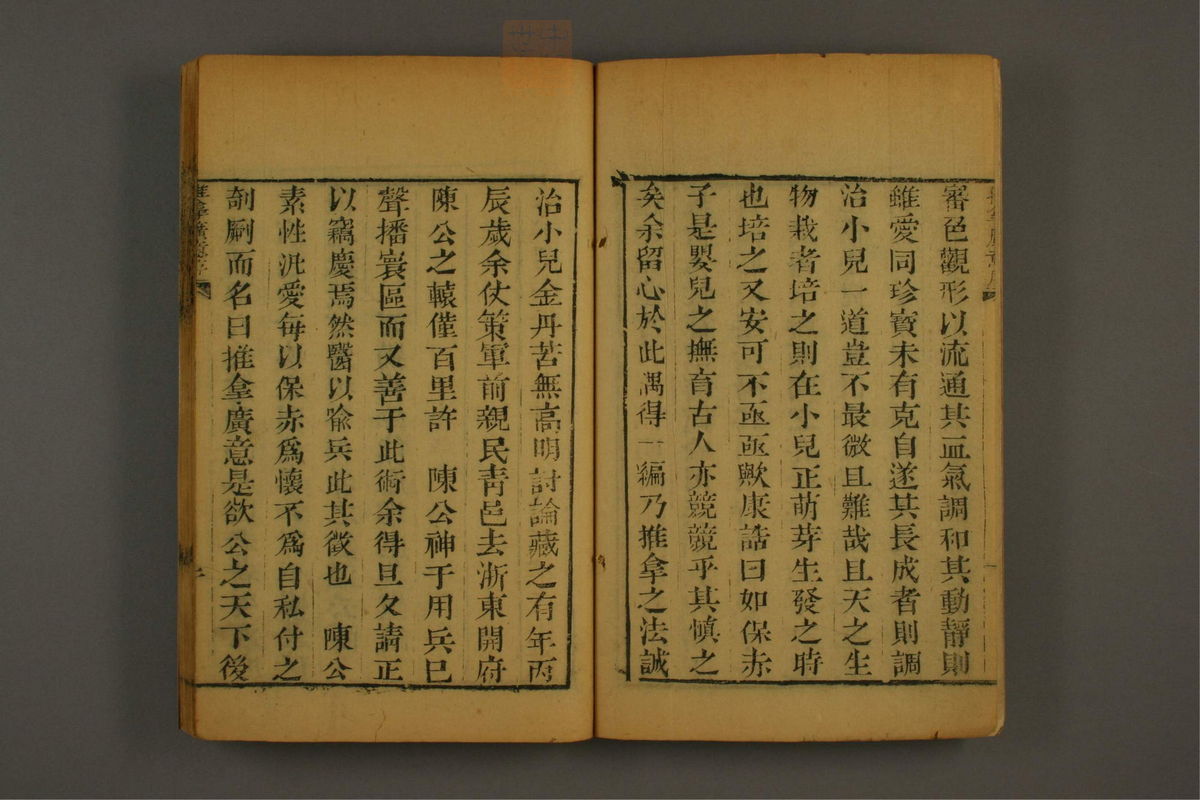 審色觀形以流通其血氣調和其動靜則
雖愛同珍寶未有克自遂其長成者則調
治小兒一道豈不最微且難哉且天之生
物栽者培之則在小兒正萌芽生發之時
也培之又安可不亟亟歟康誥曰如保赤
子是嬰兒之撫育古人亦競競乎其慎之
矣余留心於此偶得一編乃推拿之法誠
治小兒金丹苦無高明討論藏之有年丙
辰歲余仗策軍前親民青邑去浙東開府
陳公之轅僅百里許　陳公神于用兵巳
聲播寰區而又善于此術余得旦夕請正
以竊慶焉然醫以喻兵此其徵也　陳公
素性汎愛每以保赤為懷不為自私付之
剞劂而名曰推拿廣意是欲公之天下後
推拿廣意序